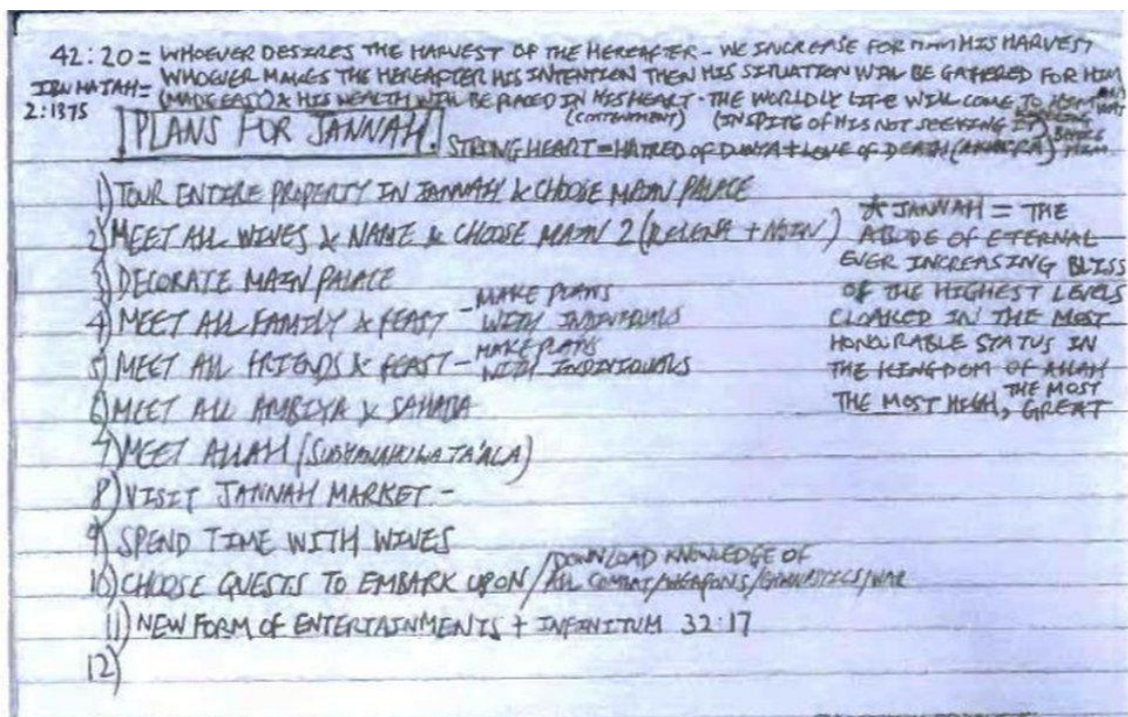 42:20 = WHOEVER DESIRES THE HARVEST OF THE HEREAFTER - WE INCREASE FOR HIM HIS HARVEST
IBN MAJAH = WHOEVER MAKES THE HEREAFTER HIS INTENTION THEN HIS SITUATION WILL BE GATHERED FOR HIM
2:1375 (MADE EASY) & HIS WEALTH WILL BE PLACED IN HIS HEART - THE WORLDLY LIFE WILL COME TO HIM
(CONTENTMENT) (INSPITE OF HIS NOT SEEKING IT)
PLANS FOR JANNAH.
STRONG HEART = HATRED OF DUNYA + LOVE OF DEATH (AKHIRA)
1) TOUR ENTIRE PROPERTY IN JANNAH & CHOOSE MAIN PALACE
2) MEET ALL WIVES & NAME & CHOOSE MAIN 2
3) DECORATE MAIN PALACE
4) MEET ALL FAMILY & FEAST - MAKE PLANS
WITH INDIVIDUALS
5) MEET ALL FRIENDS & FEAST - MAKE PLANS
WITH INDIVIDUALS
6) MEET ALL AMBIYA & SAHABA
7) MEET ALLAH (SUBHANAHUWATA'ALA)
8) VISIT JANNAH MARKET -
9) SPEND TIME WITH WIVES
10) CHOOSE QUESTS TO EMBARK UPON / DOWNLOAD KNOWLEDGE OF
ALL COMBAT/WEAPONS/GYMNASTICS/WAR
11) NEW FORM OF ENTERTAINMENTS + INFINITUM 32:17
12)
* JANNAH = THE
ABODE OF ETERNAL
EVER INCREASING BLISS
OF THE HIGHEST LEVELS
CLOAKED IN THE MOST
HONOURABLE STATUS IN
THE KINGDOM OF ALLAH
THE MOST HIGH, THE MOST
GREAT